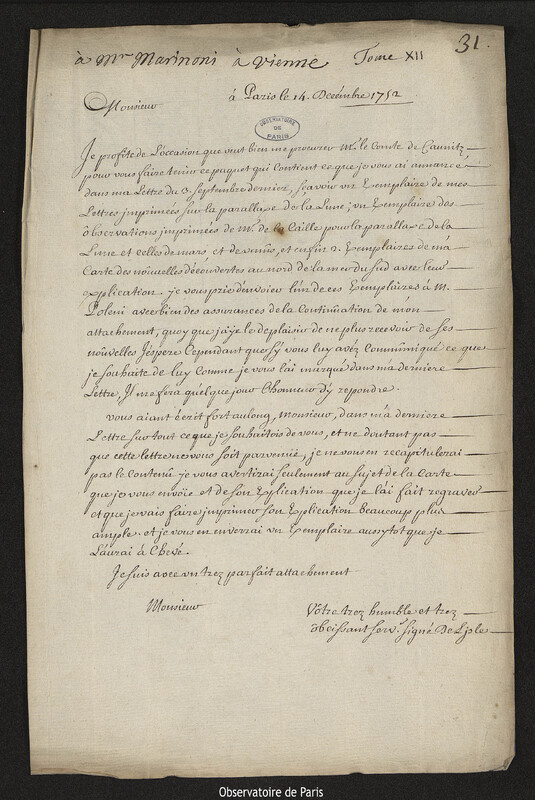 31.
à Mr Marinoni à Vienne Tome XII
à Paris le 14. Décémbre 1752
Monsieur
OBSERVATOIRE
DE
PARIS
Je profite de l'occasion que veut bien me procurer Mr. le Comte de Caunitz,
pour vous faire tenir ce paquet qui Contient ce que je vous ai annoncé
dans ma Lettre du 3. Septembre dernier, sçavoir un Exemplaire de mes
Lettres imprimées sur la parallaxe de la Lune; un Exemplaire des
observations imprimées de Mr. de la Caille pour la parallaxe de la
Lune et celles de mars, et de venus, et enfin 2. Exemplaires de ma
Carte des nouvelles découvertes au nord de la mer du Sud avec leur
explication. je vous prie d'envoïer l'un de ces Exemplaires à M.
Poleni avec bien des assurances de la Continüation de mon
attachement, quoy que j'aije le deplaisir de ne plus recevoir de ses
nouvelles J'éspere Cependant que sy vous luy avéz Communiqué ce que
je souhaite de luy Comme je vous l'ai marqué dans ma derniere
Lettre, Il me fera quelque jour l'honneur d'y repondre.
vous aiant écrit fort au long, Monsieur, dans ma derniere
Lettre sur tout ce que je souhaitois de vous, et ne doutant pas
que cette lettre ne vous soit parvenüe, je ne vous en recapitulerai
pas le Contenû je vous avertirai seulement au sujet de la Carte
que je vous envoïe et de son Explication que je l'ai fait regraver
et que je vais faire imprimer son Explication beaucoup plus
ample. et je vous en enverrai un Exemplaire aussytot que je
L'aurai achevé.
Je suis avec un trez parfait attachement
Monsieur
Vôtre trez humble et trez
obeissant serv.r signé De L'isle
Observatoire de Paris